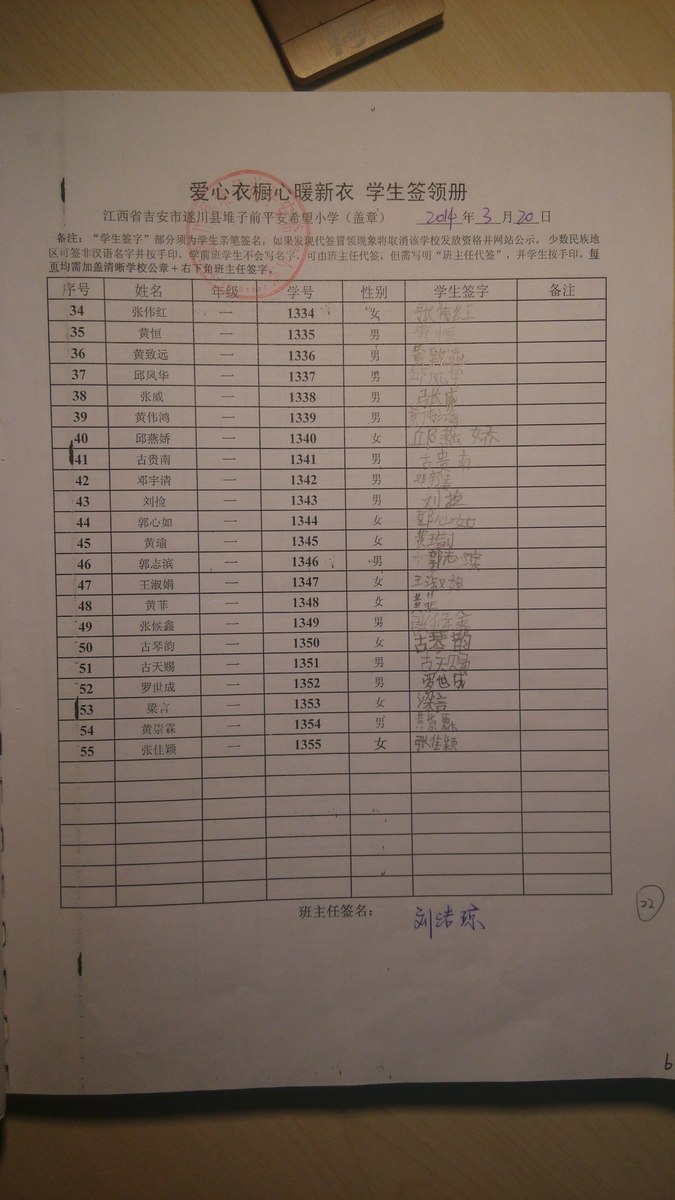 爱心衣橱心暖新衣 学生签领册
江西省吉安市遂川县堆子前平安希望小学（盖章） 2014 年 3 月 20 日
备注：“学生签字”部分须为学生亲笔签名，如果发现代签冒领现象将取消该学校发放资格并网站公示。少数民族地
区可签非汉语名字并按手印，学前班学生不会写名字，可由班主任代签，但需写明“班主任代签”，并学生按手印。每
页均需加盖清晰学校公章+右下角班主任签字。
序号 姓名 年级 学号 性别 学生签字 备注
34 张伟红 一 1334 女 张伟红
35 黄恒 一 1335 男
36 黄致远 一 1336 男 黄致远
37 邱风华 一 1337 男 邱风华
38 张威 一 1338 男 张威
39 黄伟鸿 一 1339 男 黄伟鸿
40 邱燕娇 一 1340 女 邱燕娇
41 古贵南 一 1341 男 古贵南
42 邓宇清 一 1342 男
43 刘捡 一 1343 男 刘捡
44 郭心如 一 1344 女 郭心如
45 黄瑜 一 1345 女 黄瑜
46 郭志滨 一 1346 男 郭志滨
47 王淑娟 一 1347 女 王淑娟
48 黄菲 一 1348 女 黄菲
49 张候鑫 一 1349 男 张候鑫
50 古琴韵 一 1350 女 古琴韵
51 古天赐 一 1351 男 古天赐
52 罗世成 一 1352 男 罗世成
53 梁言 一 1353 女 梁言
54 黄崇霖 一 1354 男 黄崇霖
55 张佳颖 一 1355 女 张佳颖
班主任签名： 刘洁琼
22
6